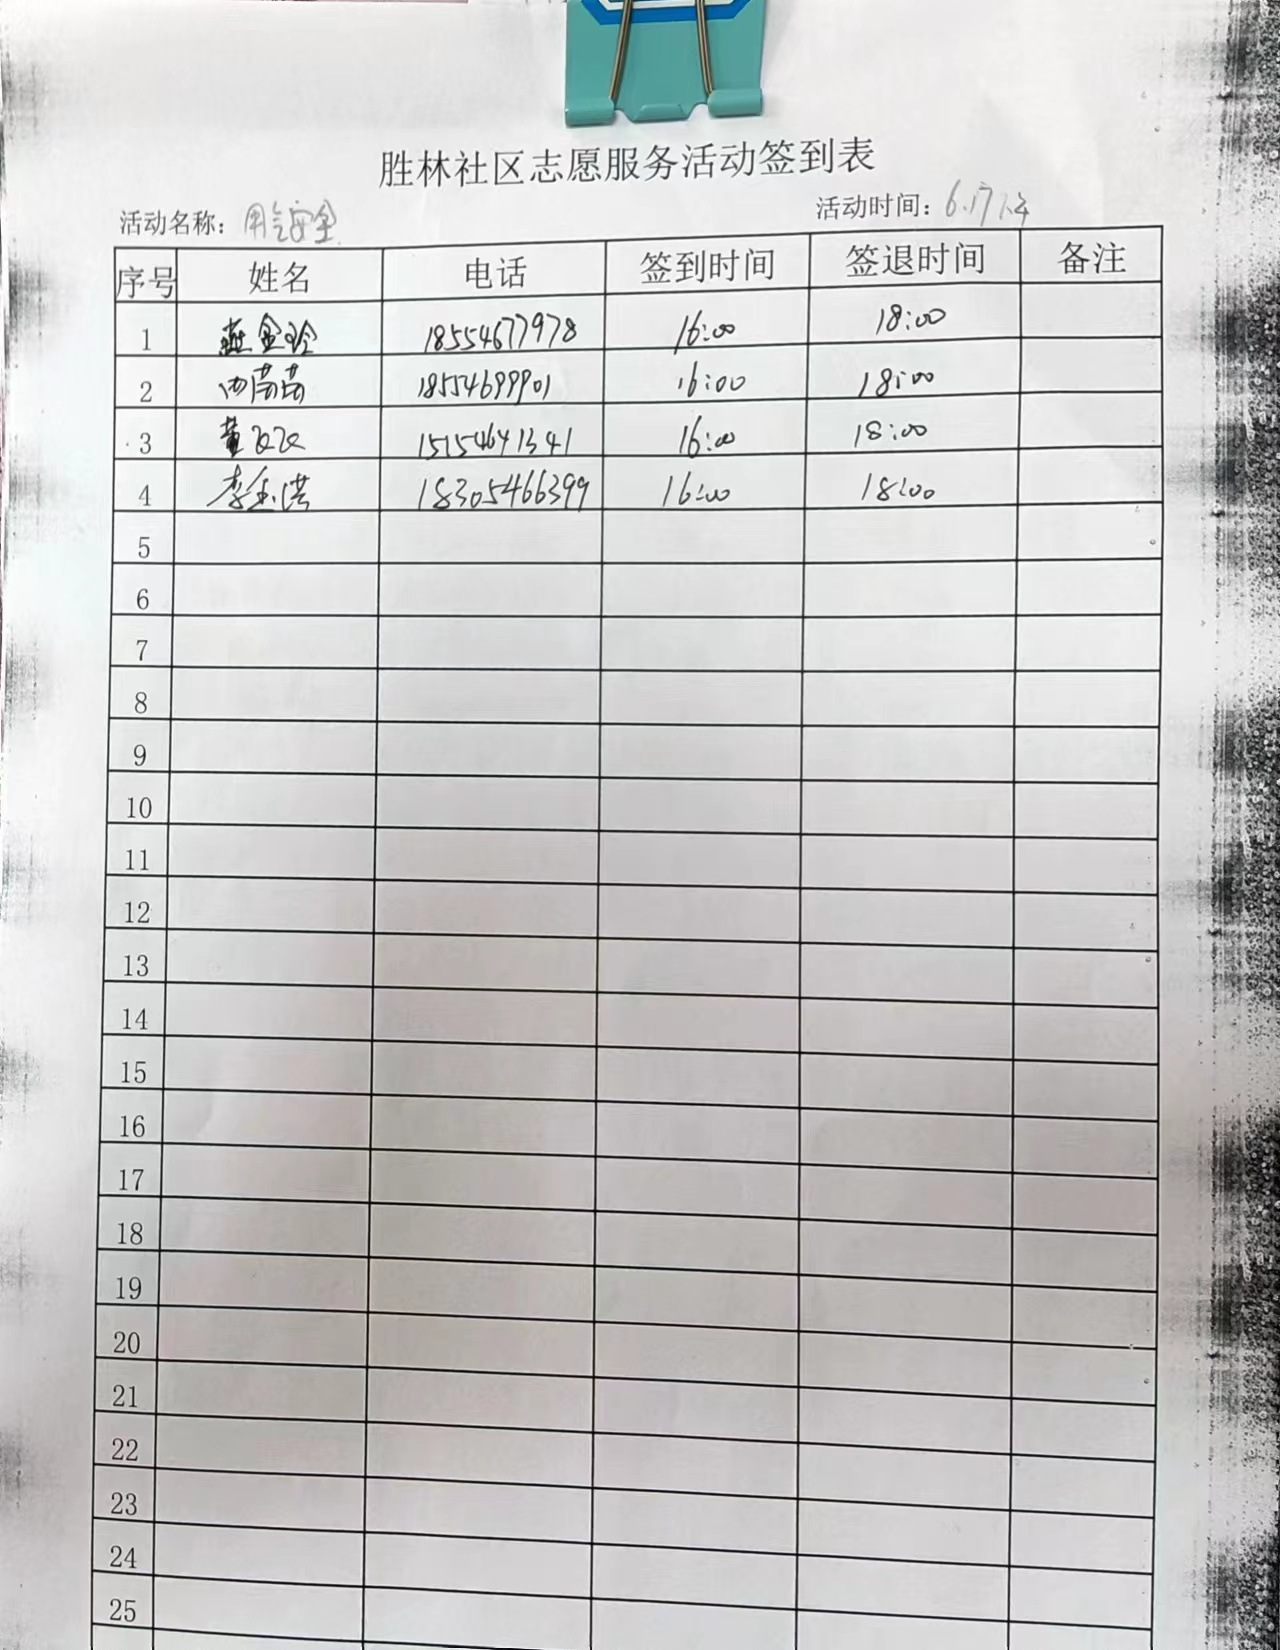 胜林社区志愿服务活动签到表
活动名称：用气安全 活动时间：6.17下午
序号 姓名 电话 签到时间 签退时间 备注
1 燕金玲 18554677978 16:00 18:00
2 苗苗 18554699901 16:00 18:00
3 董 15154641341 16:00 18:00
4 李玉洪 18305466399 16:00 18:00
5
6
7
8
9
10
11
12
13
14
15
16
17
18
19
20
21
22
23
24
25